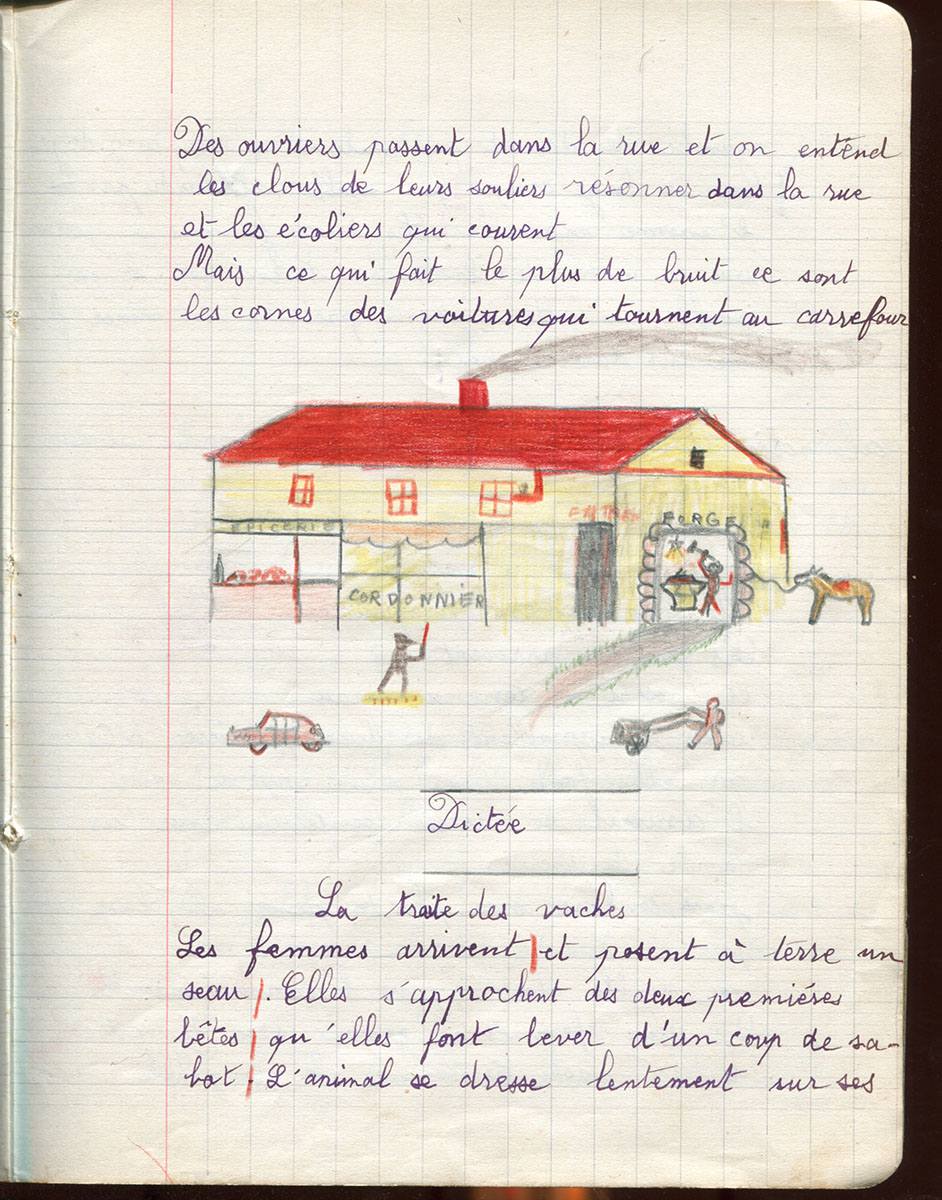 Des ouvriers passent dans la rue et on entend
les clous de leurs souliers résonner dans la rue
et les écoliers qui courent
Mais ce qui fait le plus de bruit ce sont
les cornes des voitures qui tournent au carrefour
EPICERIE
ENTREE
FORGE
CORDONNIER
Dictée
La traite des vaches
Les femmes arrivent et posent à terre un
seau. Elles s'approchent des deux premiéres
bêtes qu'elles font lever d'un coup de sa-
bot. L'animal se dresse lentement sur ses